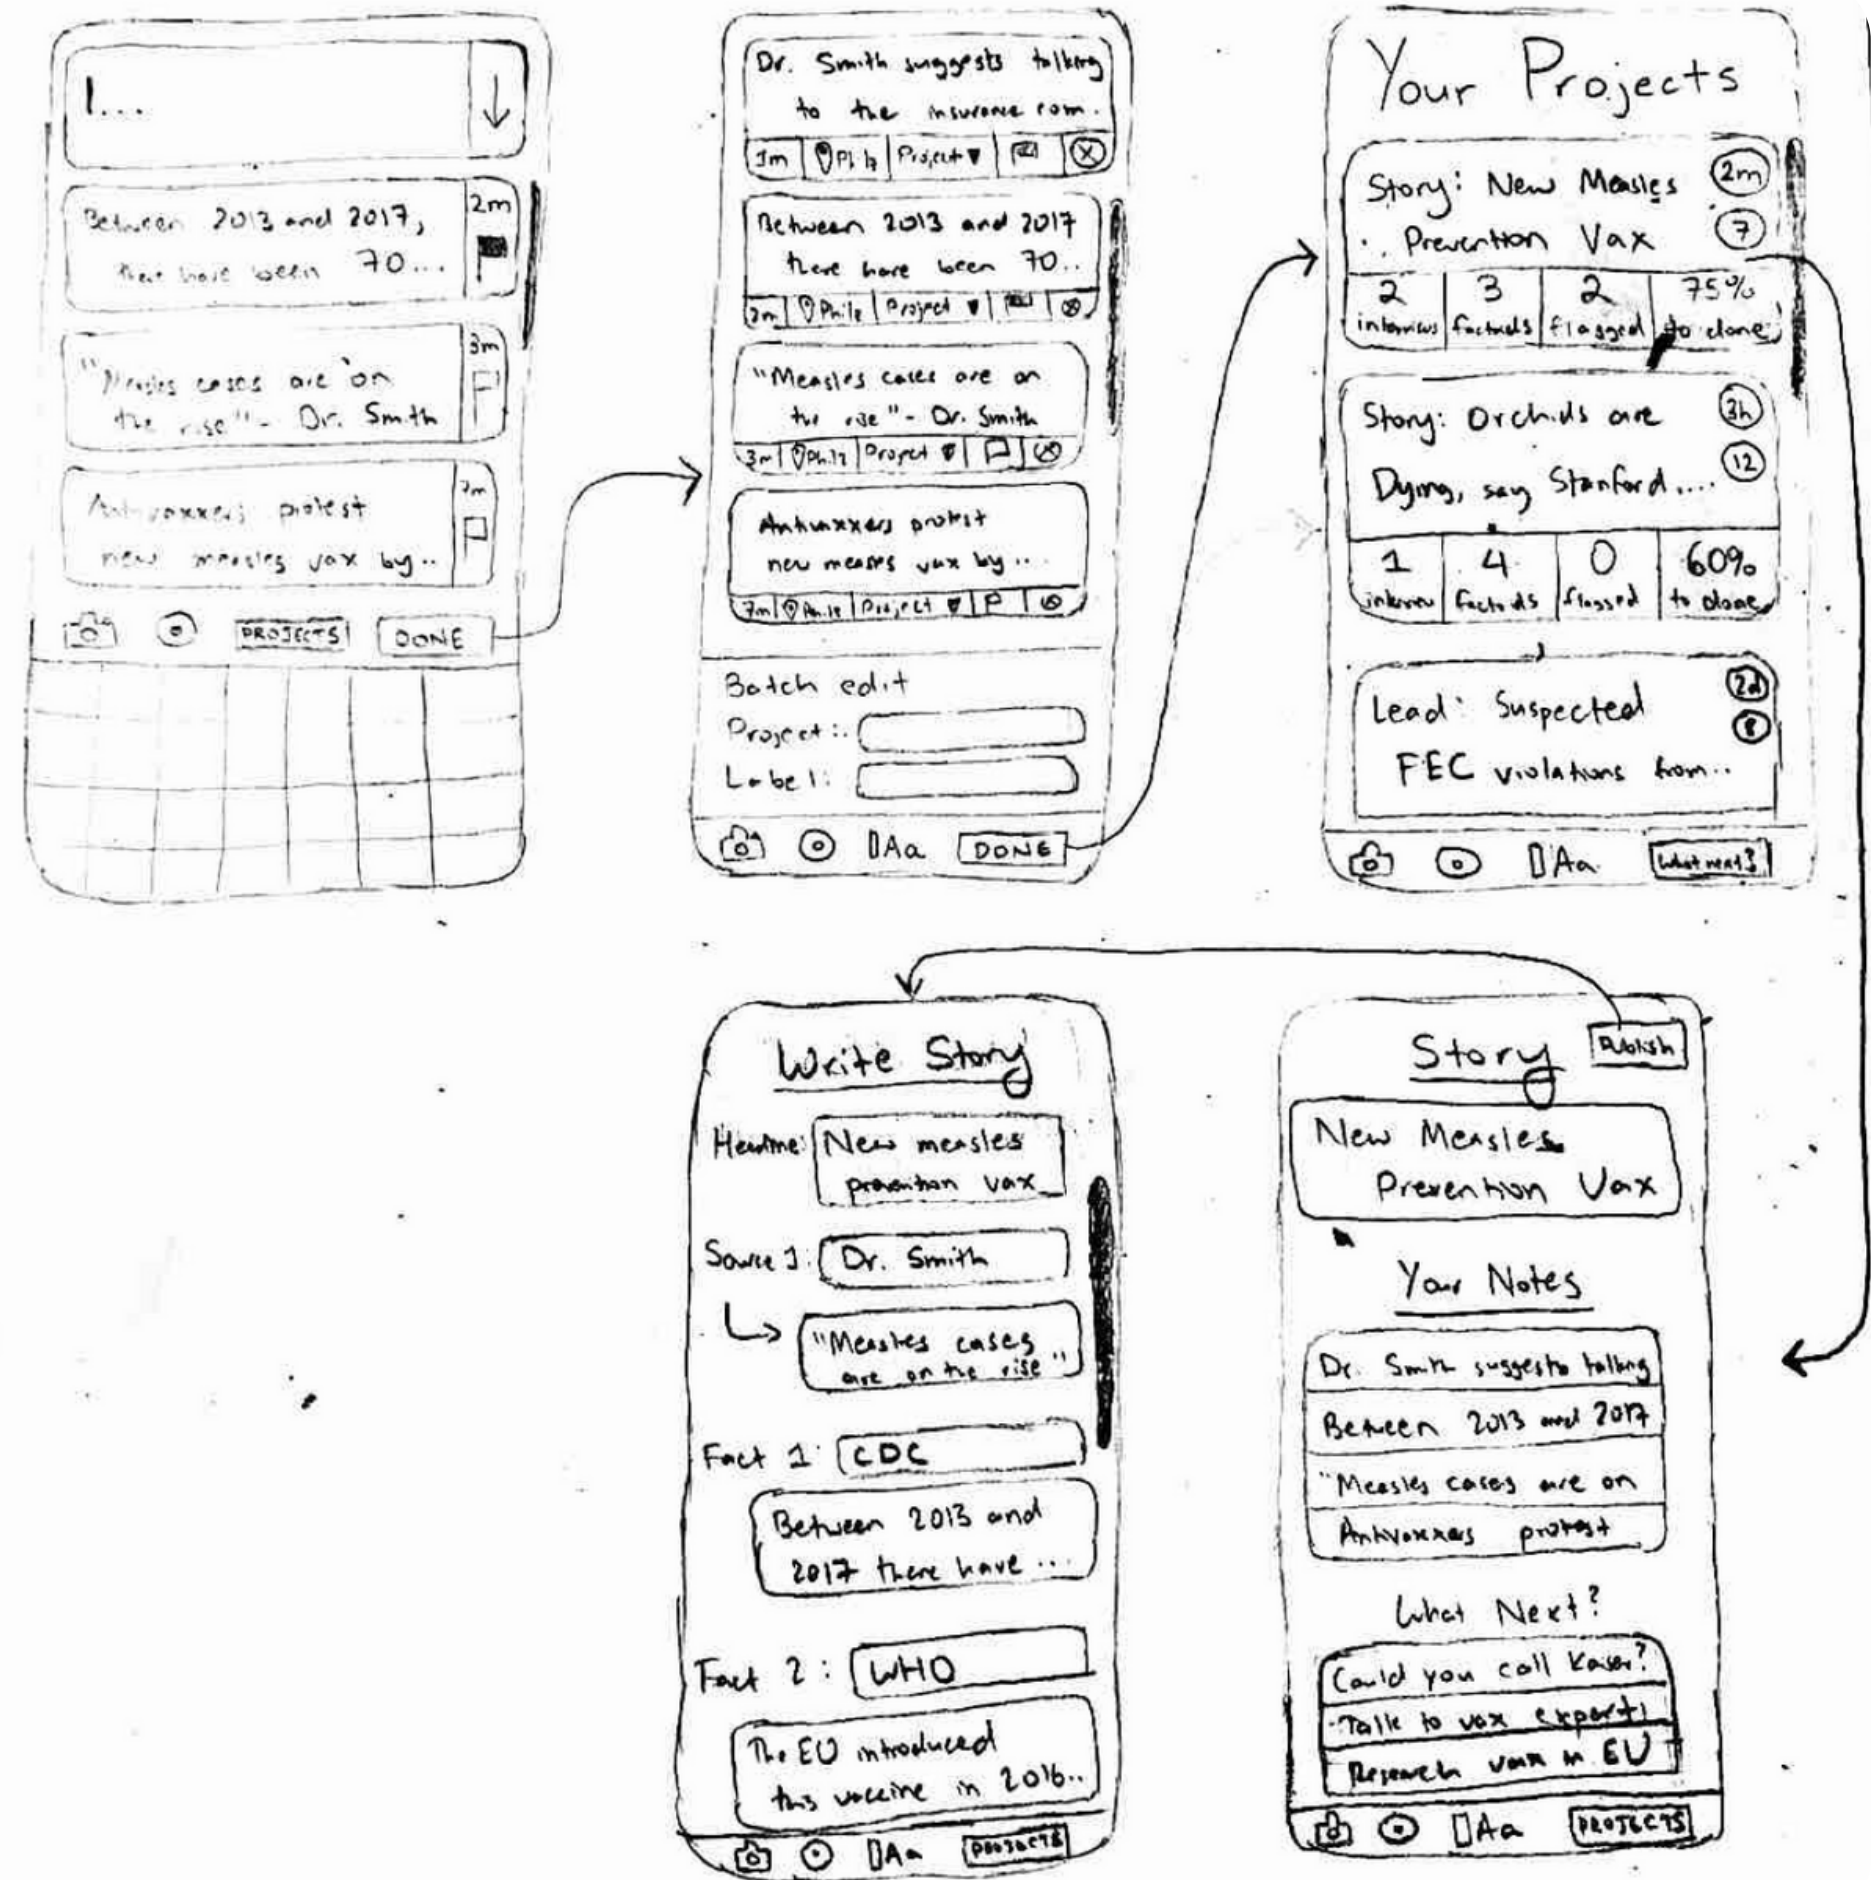 I...
Between 2013 and 2017,
there have been 70...
2m
"Measles cases are on
the rise" - Dr. Smith
3m
Antivaxxers protest
new measles vax by ..
7m
PROJECTS
DONE
Dr. Smith suggests talking
to the insurance com.
1m Philz Project
Between 2013 and 2017
there have been 70..
2m Philz Project
"Measles cases are on
the rise" - Dr. Smith
3m Philz Project
Antivaxxers protest
new measles vax by ...
7m Philz Project
Batch edit
Project:
Label:
Aa
DONE
Your Projects
Story: New Measles
Prevention Vax
2m
7
2 interviews
3 factoids
2 flagged
75% to done
Story: Orchids are
Dying, say Stanford....
3h
12
1 interview
4 factoids
0 flagged
60% to done
Lead: Suspected
FEC violations from..
2d
8
Aa
What next?
Write Story
Headline: New measles
prevention vax
Source 1: Dr. Smith
"Measles cases
are on the rise"
Fact 1: CDC
Between 2013 and
2017 there have ...
Fact 2: WHO
The EU introduced
this vaccine in 2016..
Aa
PROJECTS
Story
Publish
New Measles
Prevention Vax
Your Notes
Dr. Smith suggests talking
Between 2013 and 2017
"Measles cases are on
Antivaxxers protest
What Next?
Could you call Kaiser?
Talk to vax experts
Research vax in EU
Aa
PROJECTS